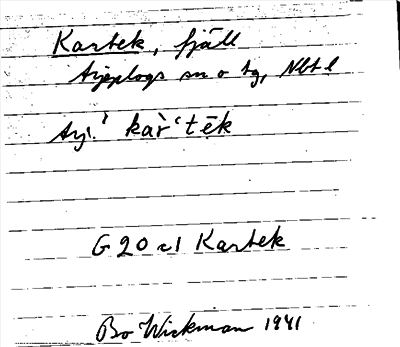 Kartek, fjäll
Arjeplogs sn o tg, Nbt l
Arj. kàr̀ʿtēk
G 20 c1 Kartek
Bo Wickman 1941